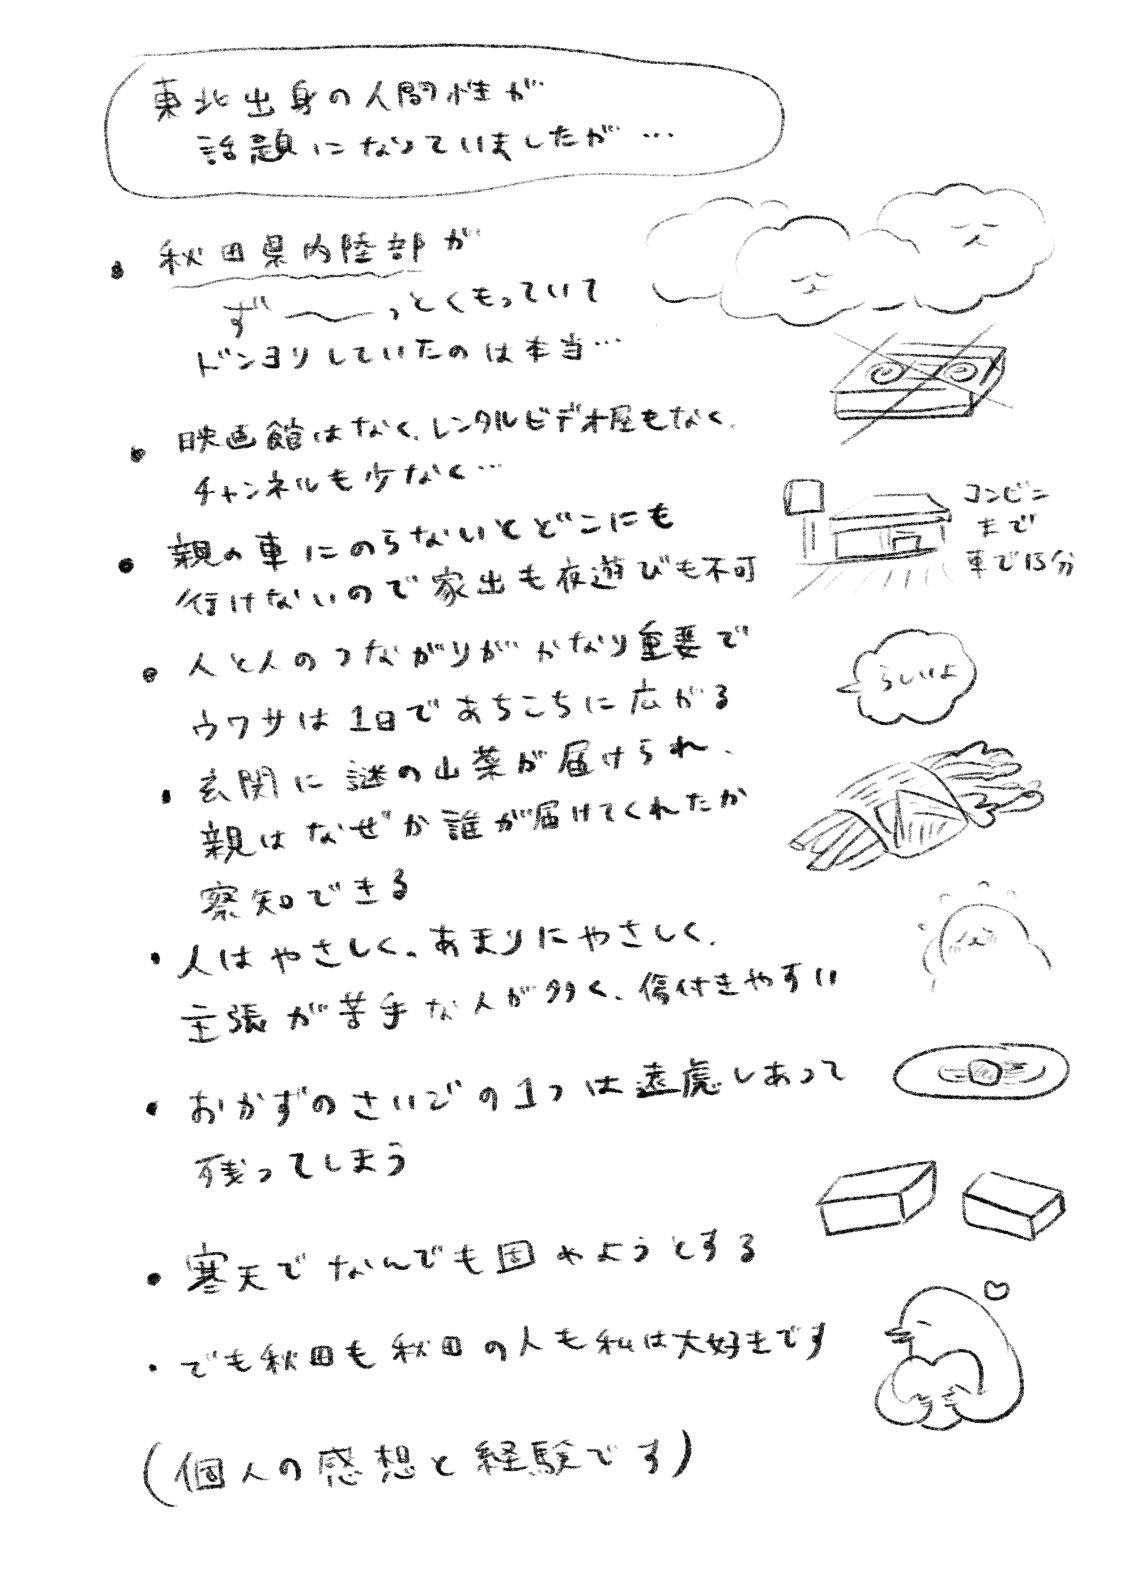 東北出身の人間性が
話題になっていましたが…
秋田県内陸部が
ず〜っとくもっていて
ドンヨリしていたのは本当…
映画館はなく、レンタルビデオ屋もなく、
チャンネルも少なく…
親の車にのらないとどこにも
行けないので家出も夜遊びも不可
コンビニ
まで
車で15分
人と人のつながりがかなり重要で
ウワサは1日であちこちに広がる
らしいよ
玄関に謎の山菜が届けられ、
親はなぜか誰が届けてくれたか
察知できる
人はやさしく。あまりにやさしく、
主張が苦手な人が多く、傷付きやすい
おかずのさいごの1つは遠慮しあって
残ってしまう
寒天でなんでも固めようとする
でも秋田も秋田の人も私は大好きです
(個人の感想と経験です)